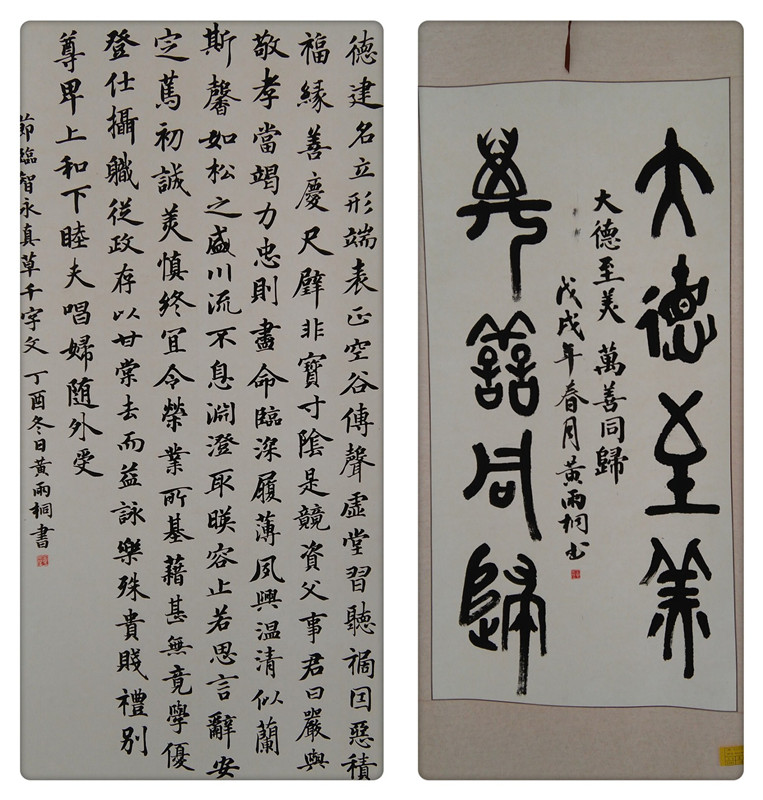 德建名立形端表正空谷傳聲虛堂習聽禍因惡積
福緣善慶尺璧非寶寸陰是競資父事君曰嚴與
敬孝當竭力忠則盡命臨深履薄夙興温清似蘭
斯馨如松之盛川流不息淵澄取暎容止若思言辭安
定篤初誠美慎終宜令榮業所基藉甚無竟學優
登仕攝職從政存以甘棠去而益詠樂殊貴賤禮別
尊卑上和下睦夫唱婦随外受
節臨智永真草千字文 丁酉冬日黄雨桐書
大德至美
萬善同歸
大德至美 萬善同歸
戊戌年春月黄雨桐书